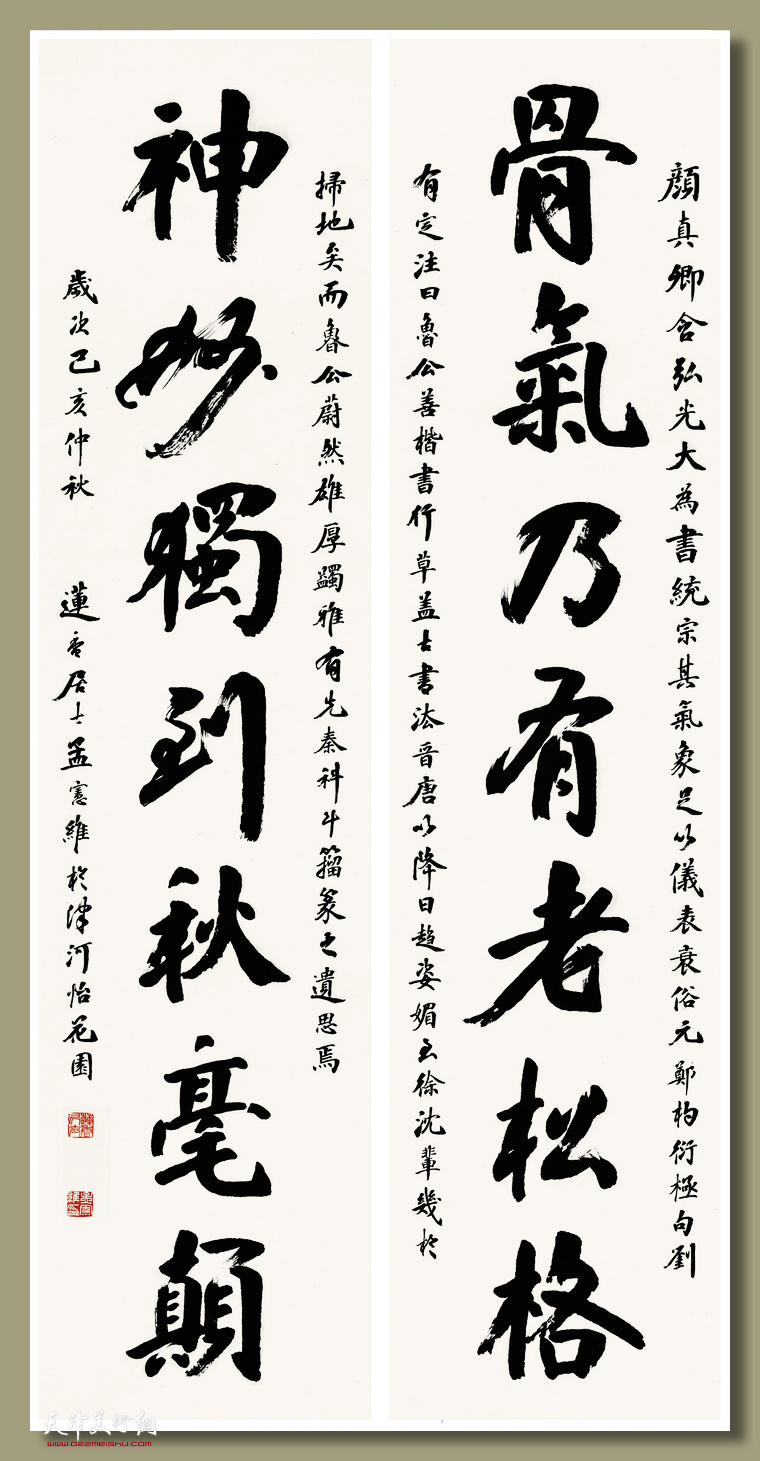 顏真卿含弘光大為書統宗其氣象足以儀表衰俗元鄭杓衍極句劉
骨氣乃有老松格
有定注曰魯公善楷書行草蓋古書法晉唐以降日趨姿媚至徐沈輩幾於
掃地矣而魯公蔚然雄厚蠲雅有先秦科斗籀篆之遺思焉
神妙獨到秋毫顛
歲次己亥仲秋 蓮香居士孟憲維於津河怡花園
天津美術網
www.022meishu.com